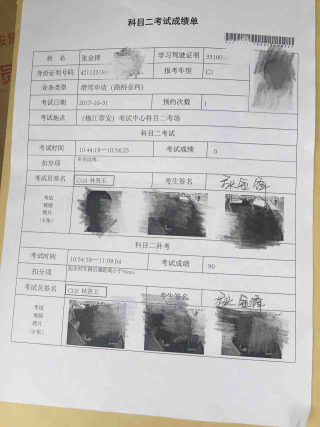 科目二考试成绩单
姓 名 张金锋 学习驾驶证明 33100
身份证明号码 42112319 报考车型 C1
业务类型 增驾申请（路桥金利）
考试日期 2017-10-31 预约次数 1
考试地点 （椒江章安）考试中心科目二考场
科目二考试
考试时间 10:44:19--10:54:25 考试成绩 0
扣分项 车身出线,
考试员签名 CGS 林贤玉 考生签名 张金锋
考试
视频
照片
(3张)
科目二补考
考试时间 10:54:59--11:09:04 考试成绩 90
扣分项
考试员签名 CGS 林贤玉 考生签名 张金锋
考试
视频
照片
(3张)